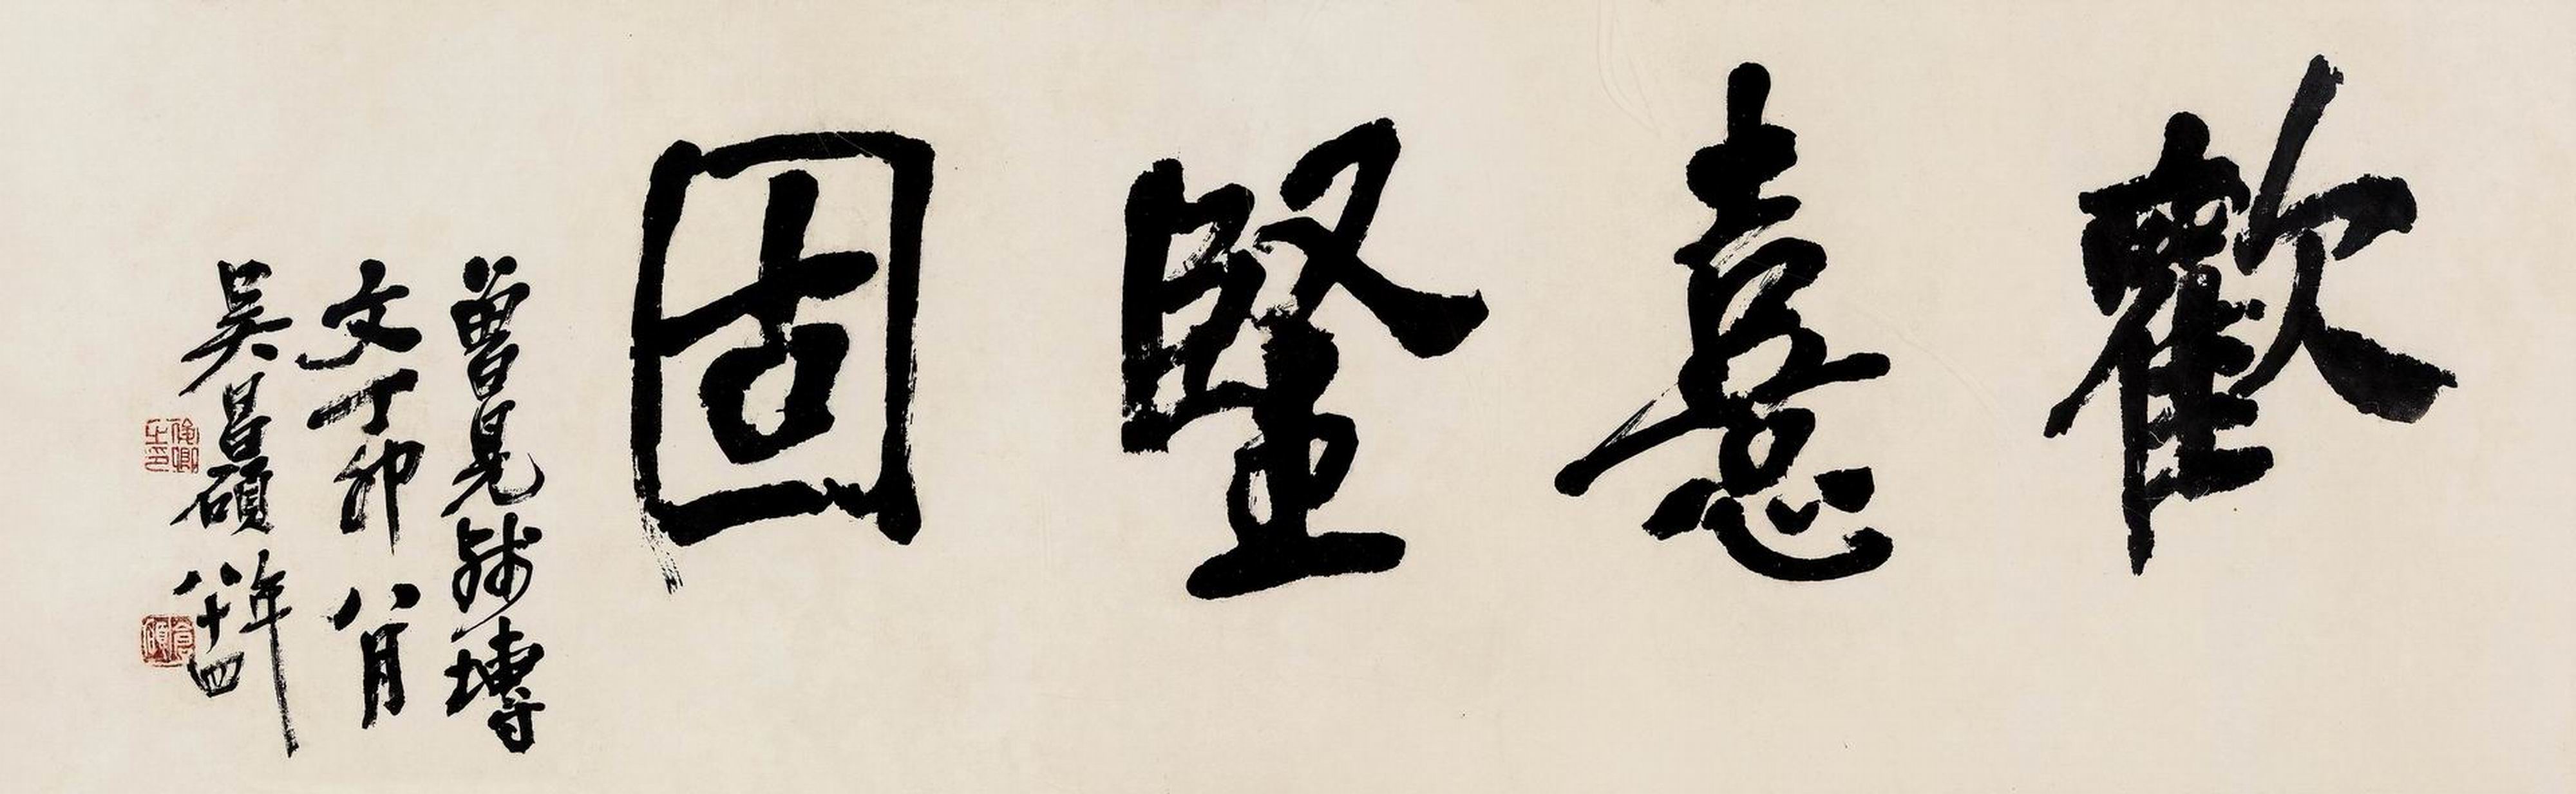 歡憙堅固
曾見殘塼
文丁卯八月
吳昌碩年八十四
俊卿之印
倉碩